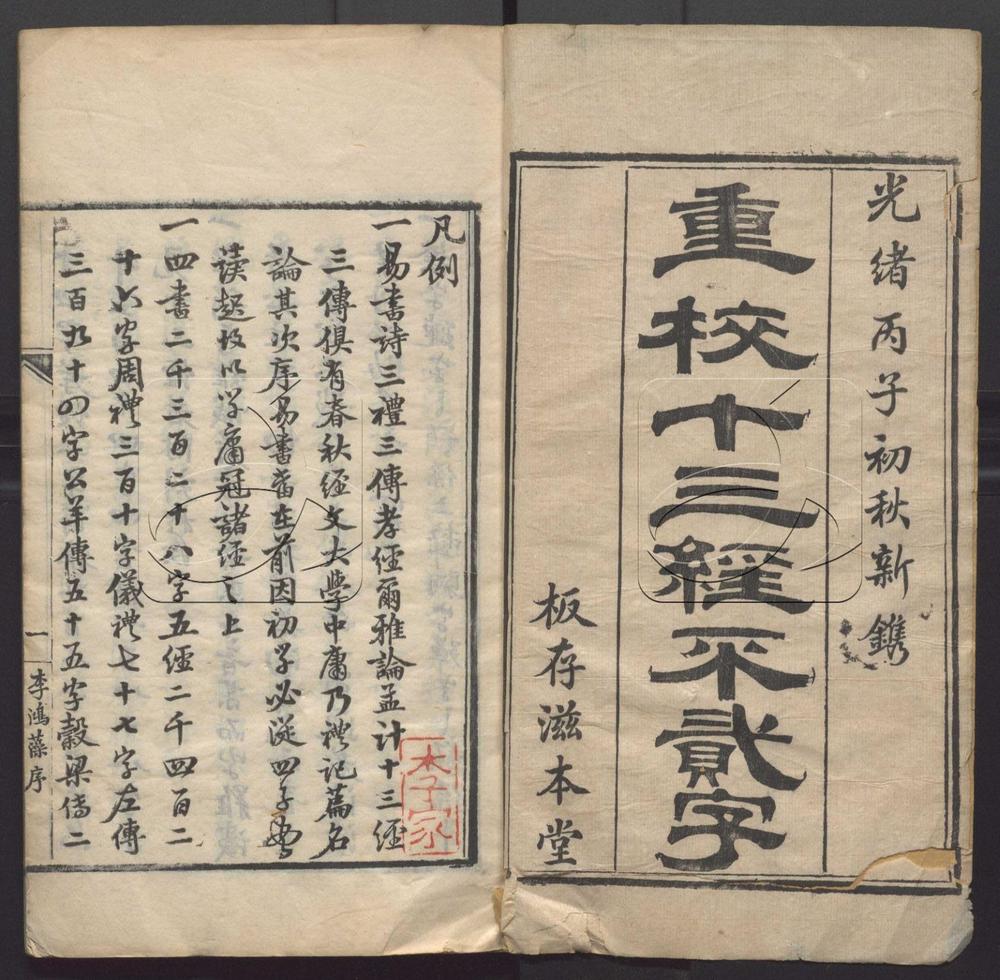 光緒丙子初秋新鐫
重校十三經不貳字
板存滋本堂
凡例
一易書詩三禮三傳孝經爾雅論孟計十三經
三傳俱有春秋經文大學中庸乃禮記篇名
論其次序易書當在前因初學必從四子書
讀起故以學庸冠諸經之上
一四書二千三百二十八字五經二千四百二
十六字周禮三百十字儀禮七十七字左傳
三百九十四字公羊傳五十五字穀梁傳二
一
李鴻藻序
木子家